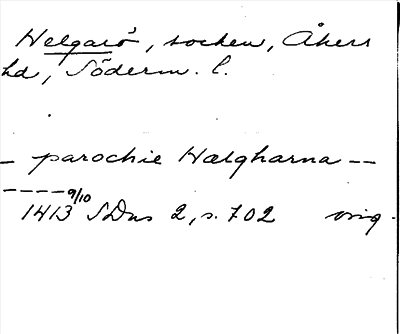 Helgarö, socken, Åkers
hd, Söderm. l.
– parochie Hælgharna – –
– – – –
1413 9/10 SDns 2, s. 702 orig.